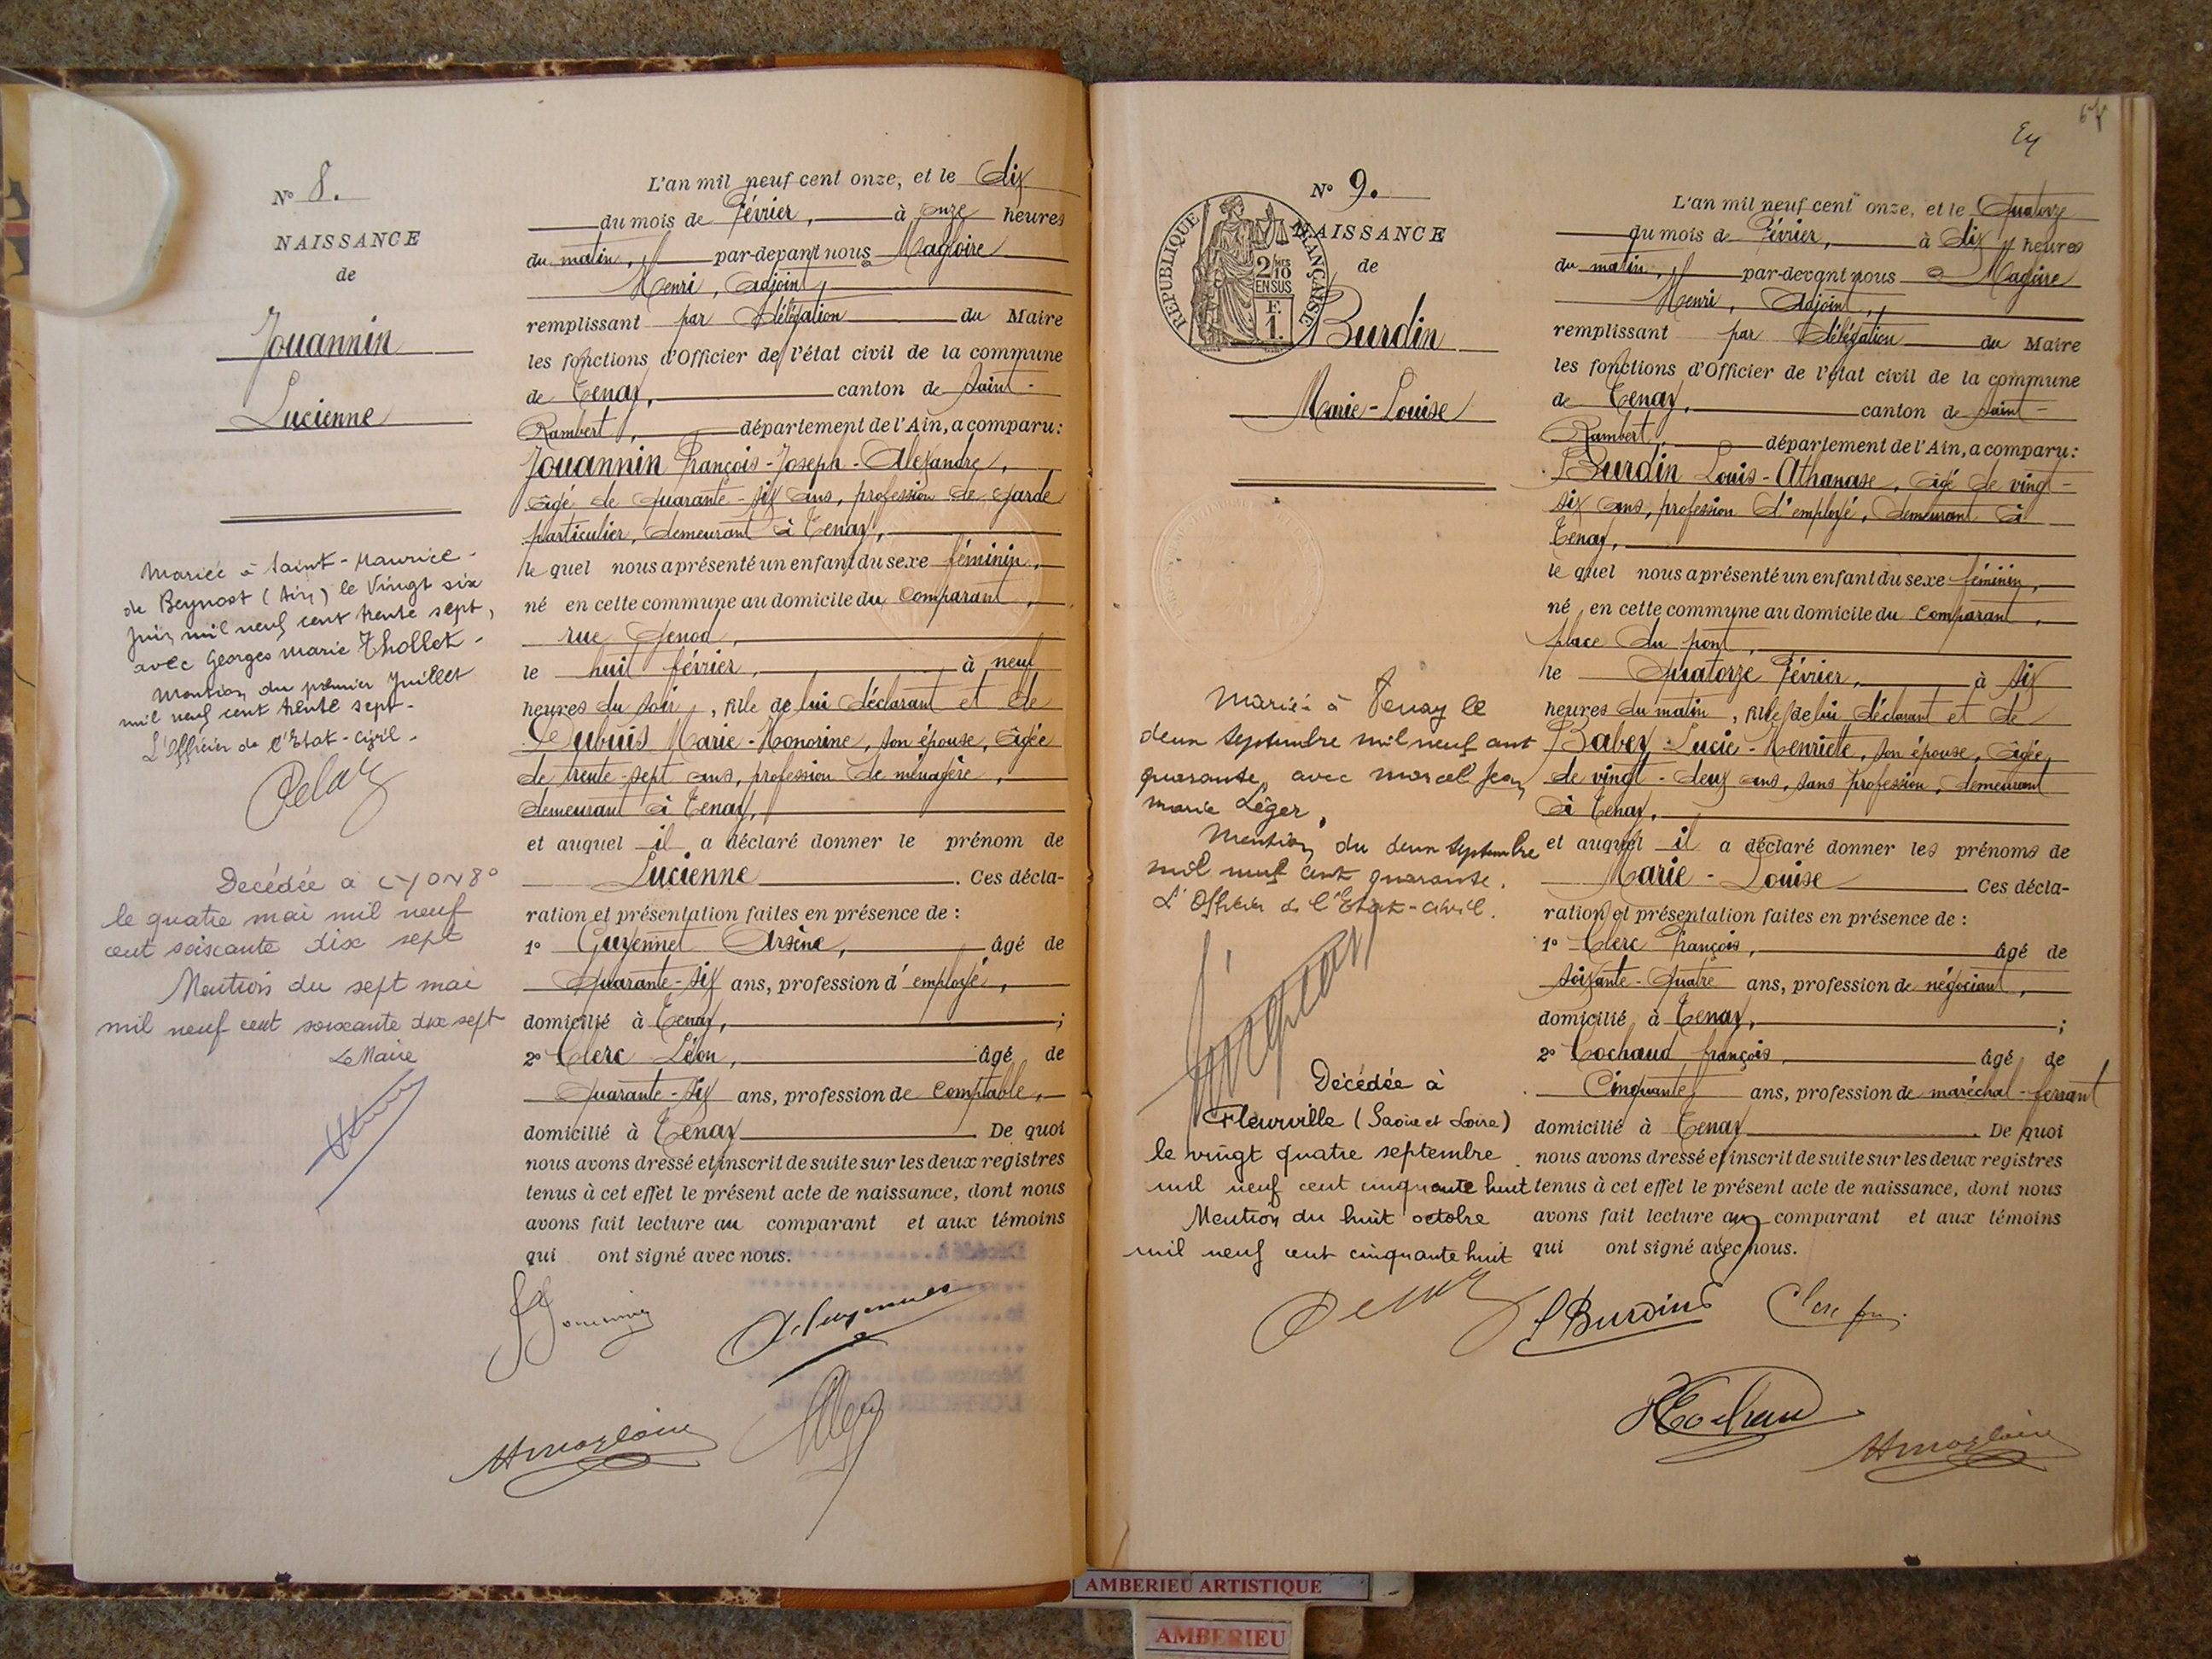 N° 8.
NAISSANCE
de
Jouannin
Lucienne
Mariée à Saint-Maurice-
de Beynost (Ain) le Vingt six
Juin mil neuf cent trente sept,
avec Georges Marie Thollet-
Mention du premier Juillet
mil neuf cent trente sept-
L'Officier de l'Etat-Civil-
Décédée à LYON 8°
le quatre mai mil neuf
cent soixante dix sept
Mention du sept mai
mil neuf cent soixante dix sept
Le Maire
L'an mil neuf cent onze, et le dix
du mois de Février, à onze heures
du matin, par-devant nous Magloire
Henri, Adjoint,
remplissant par Délégation du Maire
les fonctions d'Officier de l'état civil de la commune
de Tenay, canton de Saint-
Rambert, département de l'Ain, a comparu:
Jouannin François-Joseph-Alexandre,
âgé de quarante-six ans, profession de garde
particulier, demeurant à Tenay,
le quel nous a présenté un enfant du sexe féminin,
né en cette commune au domicile du comparant,
rue Genod,
le huit février, à neuf
heures du soir, fille de lui déclarant et de
Dubuis Marie-Honorine, son épouse, âgée
de trente-sept ans, profession de ménagère,
demeurant à Tenay,
et auquel il a déclaré donner le prénom de
Lucienne. Ces décla-
ration et présentation faites en présence de :
1° Guyennet Arsène, âgé de
Quarante-six ans, profession d'employé,
domicilié à Tenay, ;
2° Clerc Léon, âgé de
Quarante-six ans, profession de comptable,
domicilié à Tenay. De quoi
nous avons dressé et inscrit de suite sur les deux registres
tenus à cet effet le présent acte de naissance, dont nous
avons fait lecture au comparant et aux témoins
qui ont signé avec nous.
HMagloire
N° 9.
NAISSANCE
de
REPUBLIQUE FRANÇAISE
2/10
EN SUS
F.
1.
Burdin
Marie-Louise
Mariée à Tenay le
deux septembre mil neuf cent
quarante, avec Marcel Jean
Marie Léger.
Mention du deux septembre
mil neuf cent quarante.
L'Officier de l'Etat-Civil.
Décédée à
Fleurville (Saône et Loire)
le vingt quatre septembre
mil neuf cent cinquante huit
Mention du huit octobre
mil neuf cent cinquante huit
L'an mil neuf cent onze, et le Quatorze
du mois de Février, à dix heures
du matin, par-devant nous Magloire
Henri, Adjoint,
remplissant par Délégation du Maire
les fonctions d'Officier de l'état civil de la commune
de Tenay, canton de Saint-
Rambert, département de l'Ain, a comparu:
Burdin Louis-Athanase, âgé de vingt-
six ans, profession d'employé, demeurant à
Tenay,
le quel nous a présenté un enfant du sexe féminin,
né en cette commune au domicile du comparant,
place du pont,
le Quatorze Février, à six
heures du matin, fille de lui déclarant et de
Babey Lucie-Henriete, son épouse, âgée,
de vingt-deux ans, sans profession, demeurant
à Tenay,
et auquel il a déclaré donner les prénoms de
Marie-Louise. Ces décla-
ration et présentation faites en présence de :
1° Clerc François, âgé de
soixante-quatre ans, profession de négociant,
domicilié à Tenay, ;
2° Cochaud françois, âgé de
Cinquante ans, profession de maréchal-ferrant
domicilié à Tenay. De quoi
nous avons dressé et inscrit de suite sur les deux registres
tenus à cet effet le présent acte de naissance, dont nous
avons fait lecture au comparant et aux témoins
qui ont signé avec nous.
LBurdin
Clerc
Cochaud
HMagloire
AMBERIEU ARTISTIQUE
AMBERIEU